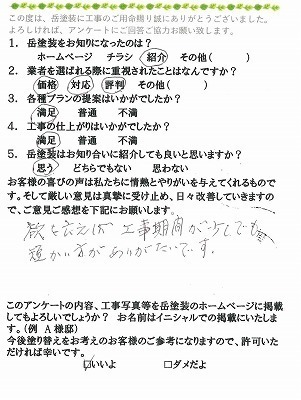 この度は、岳塗装に工事のご用命賜り誠にありがとうございました。
よろしければ、アンケートにご回答ご協力お願い致します。
1. 岳塗装をお知りになったのは？
ホームページ　チラシ　紹介　その他(　　)
2. 業者を選ばれる際に重視されたことはなんですか？
価格　対応　評判　その他(　　)
3. 各種プランの提案はいかがでしたか？
満足　普通　不満
4. 工事の仕上がりはいかがでしたか？
満足　普通　不満
5. 岳塗装はお知り合いに紹介しても良いと思いますか？
思う　どちらでもない　思わない
お客様の喜びの声は私たちに情熱とやりがいを与えてくれるものです。そして厳しい意見は真摯に受け止め、日々改善していきますので、ご意見ご感想を下記にお願いします。
欲を言えば 工事期間が少しでも
短かい方がありがたいです。
このアンケートの内容、工事写真等を岳塗装のホームページに掲載
してもよろしいでしょうか？　お名前はイニシャルでの掲載にいたしま
す。(例　A 様邸)
今後塗り替えをお考えのお客様のご参考になりますので、許可いた
だければ幸いです。
☑いいよ　□ダメだよ